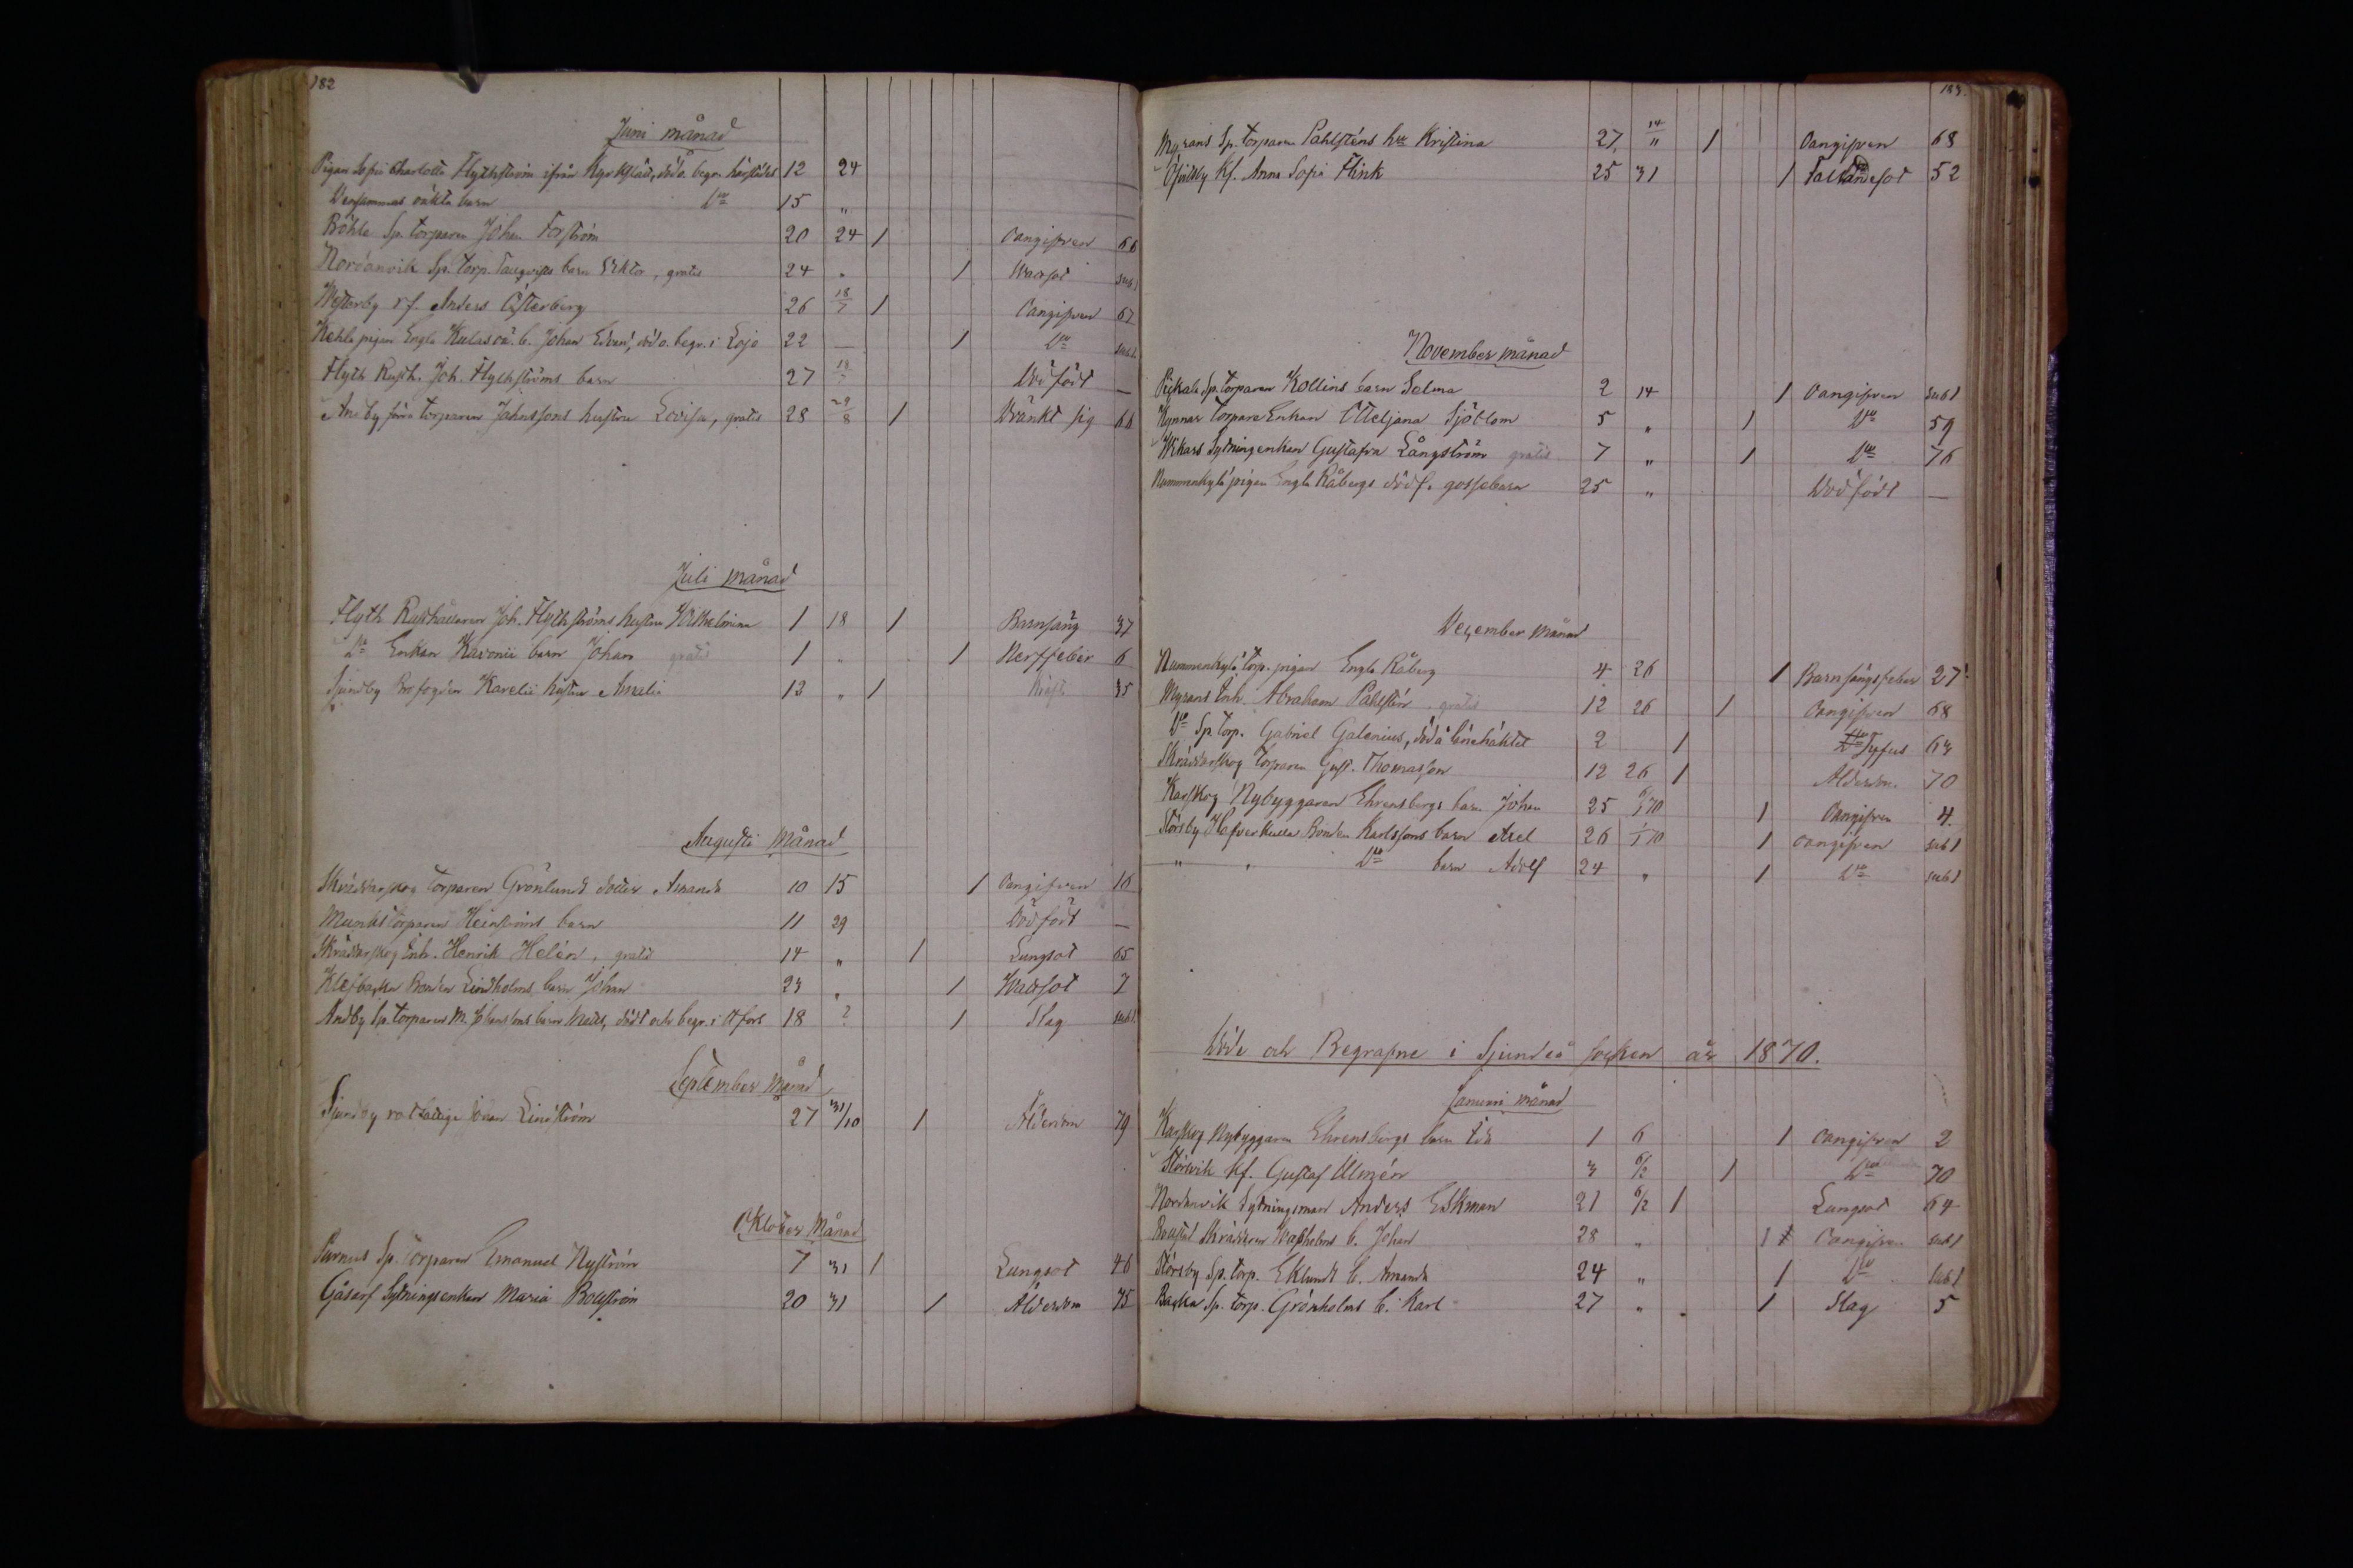 182
Juni månad
Pigan Sofia Charlotta Flythström ifrån Kyrkslätt, död o. begr. härstädes 12 24
Densammas oäkta barn Do 15 "
Böhle Sp. torparen Johan Forström 20 24 1 Oangifven 66
Nordanvik Sp. torp. barn Viktor, gratis 24 " 1 Watsot sub 1
Westerby rf. Anders Österberg 26 18/7 1 Oangifven 67
pigan Engla oä. b. Johan Edvard, död o. begr. i Lojo 22 — 1 Do sub 1
Flyth Rusth. Joh. Flythströms barn 27 18/7 Dödfödt —
Andby förra torparen Johnssons hustru Lovisa, gratis 28 29/8 1 Dränkt sig 66
Juli månad
Flyth Rusthållaren Joh. Flythströms hustru Wilhelmina 1 18 1 Barnsäng 37
Do Enkan barn Johan gratis 1 " 1 Nerffeber 6
Sjundby Brofogden Karelii hustru Amalia 12 " 1 Kräft 35
Augusti Månad
Skräddarskog torparen Grönlunds dotter Amanda 10 15 1 Oangifven 16
Munks torparen Heinströms barn 11 29 Dödfödt —
Skräddarskog Inh. Henrik Helén, gratis 14 " 1 Lungsot 65
Klefbacka Bonden Lindholms barn Johan 23 " 1 Watsot 7
Andby Sp. torparen M. barn Mats, dödt och begr. i 18 ? 1 Slag sub 1
September Månad
Sjundby rotfattige Johan Lindström 27 31/10 1 Ålderdom 79
Oktober Månad
Purnus Sp. torparen Emanuel Nyström 7 31 1 Lungsot 46
Gåsarf Sytningsenkan Maria Bollström 20 31 1 Ålderdom 75
183.
Myrans Sp. torparen Påhlsténs hu Kristina 27 14/11 1 Oangifven 68
kf. Anna Sofia Flink 25 31 1 Fallandesot 52
November månad
Pickala Sp. torparen Kollins barn Selma 2 14 1 Oangifven sub 1
Kynnar torpare Enkan Otteljana Sjöblom 5 " 1 Do 59
Wikars Sytningenkan Gustafva Långström gratis 7 " 1 Do 76
Nummenkylä pigan Engla Råbergs dödf. gossebarn 25 " Dödfödt —
December månad
Nummenkylä torp. pigan Engla Råberg 4 26 1 Barnsängsfeber 27
Myrans Inh. Abraham Påhlstén gratis 12 26 1 Oangifven 68
Do Sp. torp. Gabriel Galenius, död å länehäktet 2 1 Tyfus 63
Skräddarskog Torparen Gust. Thomasson 12 26 1 Ålderdom 70
Karskog Nybyggaren Ehrensbergs barn Johan 25 6/1 70 1 Oangifven 4.
Störsby Hefverkulla Bonden Karlssons barn Axel 26 1/1 70 1 Oangifven sub 1
" " Do barn Adolf 24 " 1 Do sub 1
Döde och Begrafne i Sjundeå socken år 1870.
Januari månad
Karskog Nybyggaren Ehrensbergs barn Ida 1 6 1 Oangifven 2
Störsvik kf. Gustaf Almgén 3 6/2 1 Do 70
Nordanvik Sytningsman Anders Eskman 21 6/2 1 Lungsot 64
Skräddaren b. Johan 28 " 1 Oangifven sub 1
Störsby Sp. torp. Eklunds b. Amanda 24 " 1 Do sub 1
Backa Sp. torp. Grönholms b. Karl 27 " 1 Slag 5